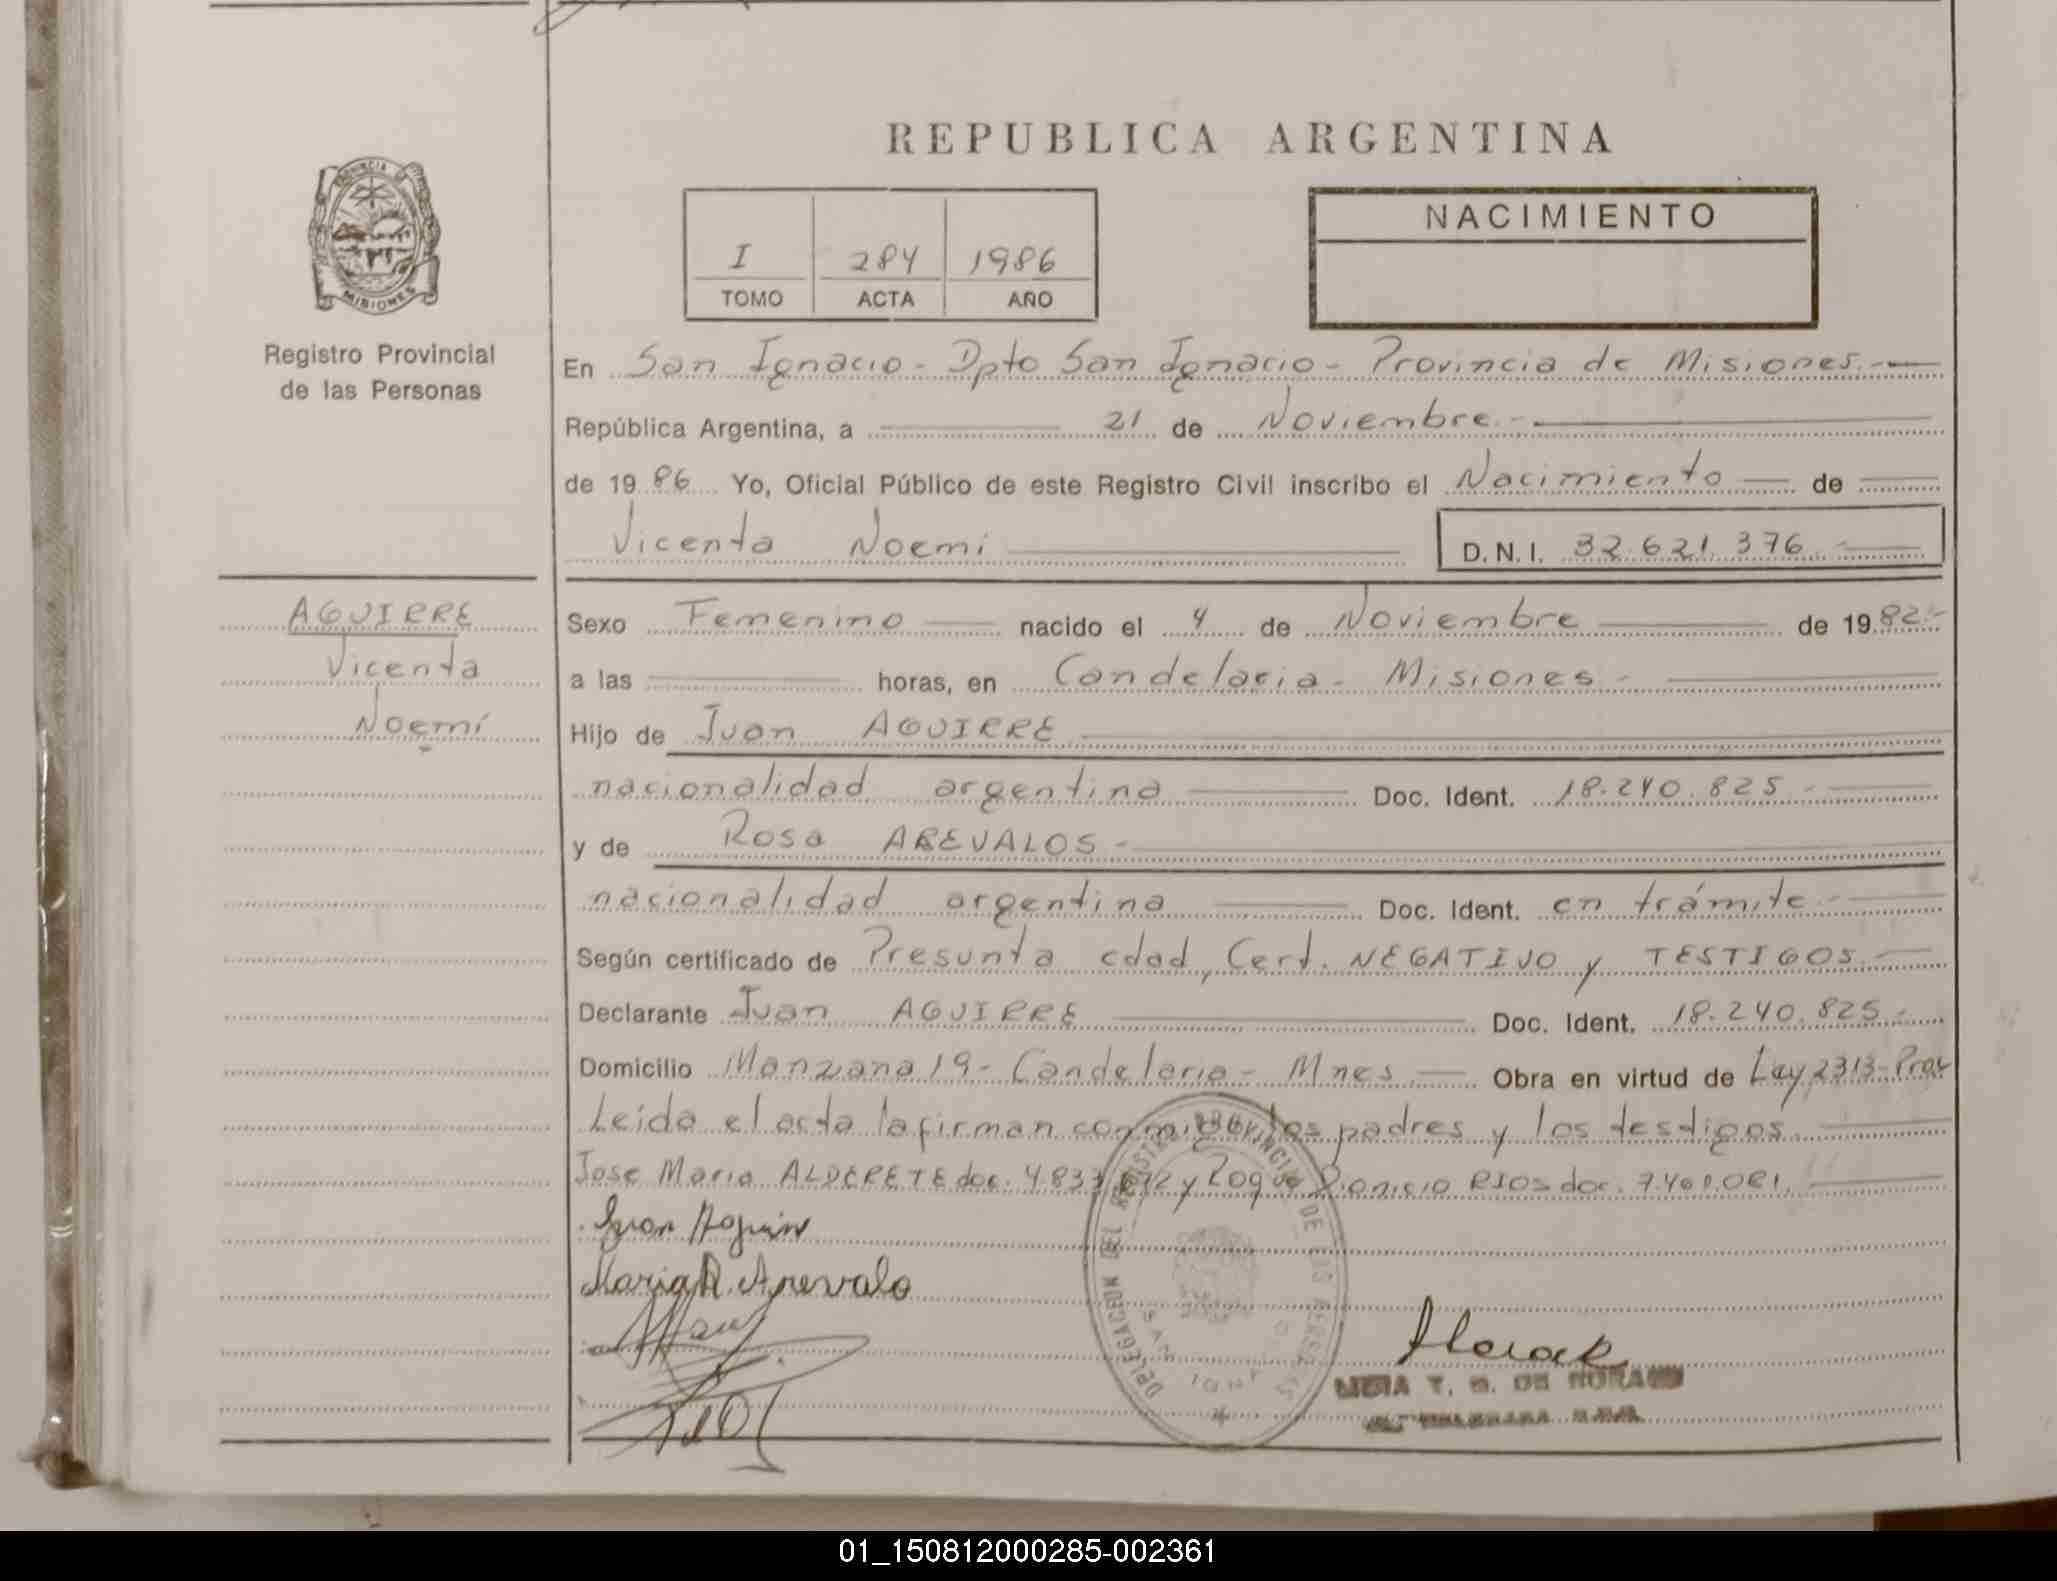 REPUBLICA ARGENTINA
PROVINCIA DE
MISIONES
Registro Provincial
de las Personas
I 284 1986
TOMO ACTA AÑO
NACIMIENTO
En San Ignacio - Dpto San Ignacio - Provincia de Misiones.-
República Argentina, a 21 de Noviembre.-
de 19 86 Yo, Oficial Público de este Registro Civil inscribo el Nacimiento de
Vicenta Noemi D.N.I. 32.621.376.-
AGUIRRE
Vicenta
Noemí
Sexo Femenino nacido el 4 de Noviembre de 1982.-
a las horas, en Candelaria - Misiones -
Hijo de Juan AGUIRRE
nacionalidad argentina Doc. Ident. 18.240.825.-
y de Rosa AREVALOS -
nacionalidad argentina Doc. Ident. en trámite.-
Según certificado de Presunta edad, Cert. NEGATIVO y TESTIGOS.-
Declarante Juan AGUIRRE Doc. Ident. 18.240.825.-
Domicilio Manzana 19 - Candelaria - Mnes. Obra en virtud de Ley 2313-Prov
Leida el acta la firman conmigo, los padres y los testigos
Jose Maria ALDERETE doc. y Roque Dionicio RIOS doc.
Juan Aguirre
Maria R. Arevalo
DELEGACION DEL REGISTRO PROVINCIAL DE LAS PERSONAS
SAN IGNACIO
T. DE
01_150812000285-002361